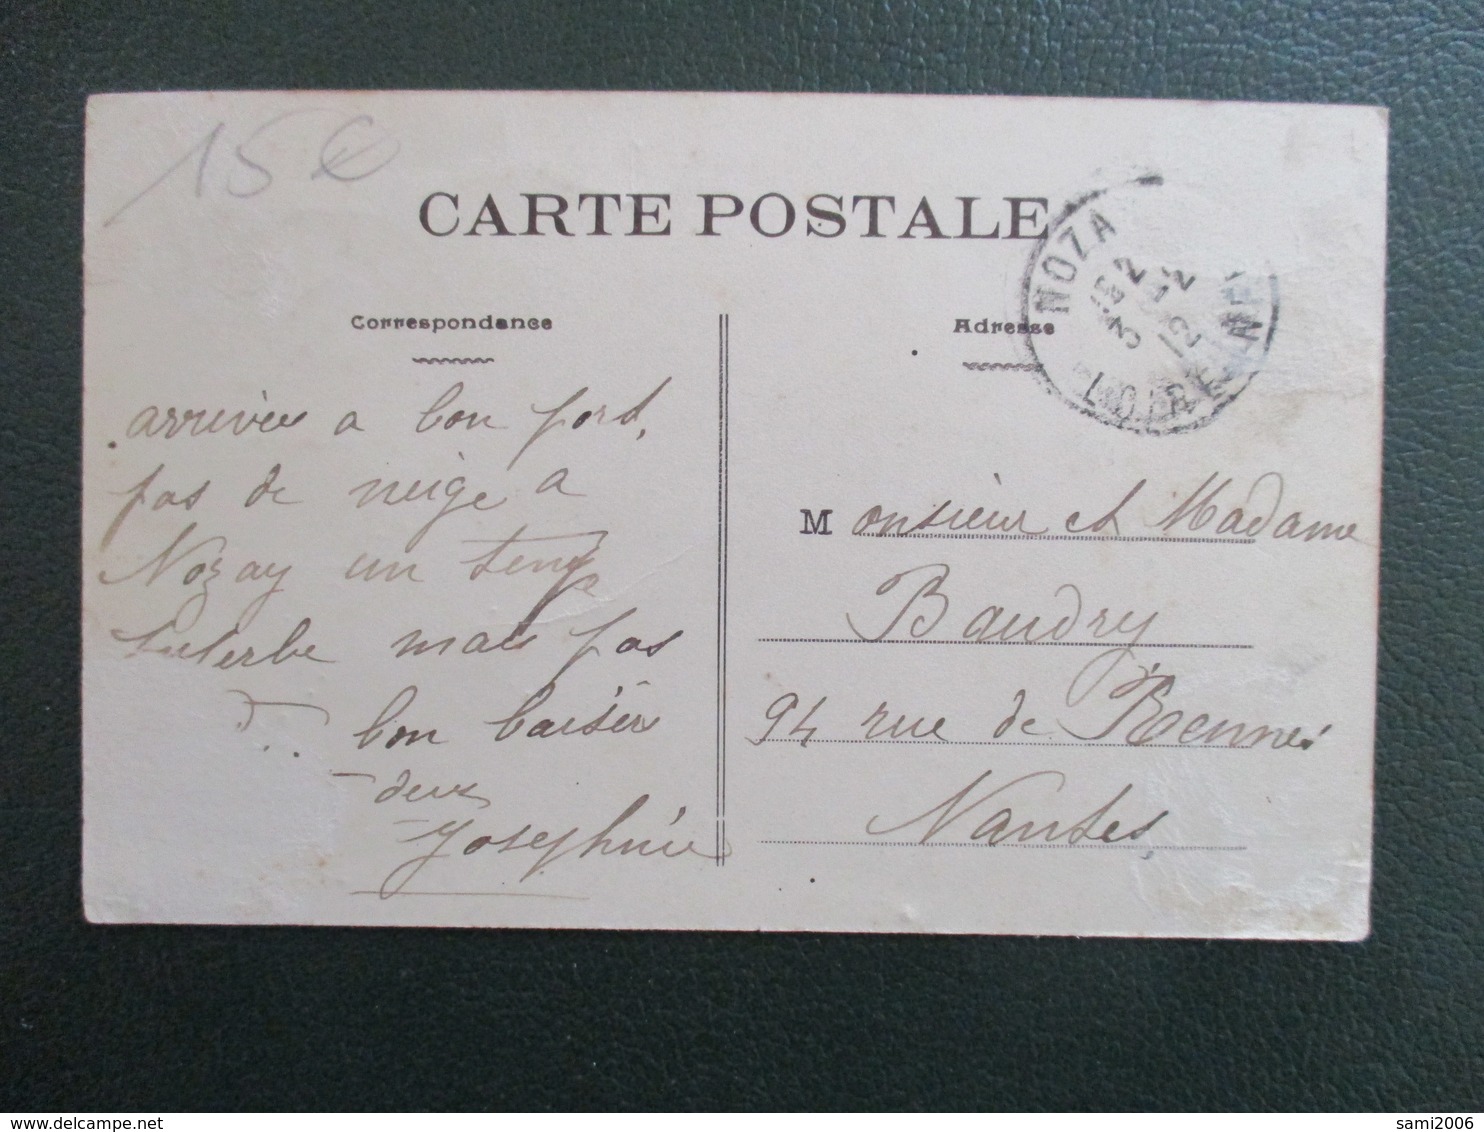 15€
CARTE POSTALE
NOZA
LOIRE INF
Correspondance
Adresse
arrivée a bon port,
pas de neige a
Nozay un temp
superbe mais pas
bon baiser
deux
Josephine
Monsieur et Madame
Baudry
94 rue de Rennes
Nantes
sami2006